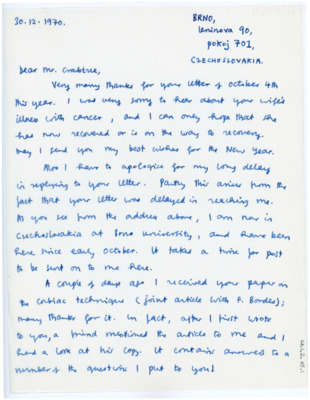 30.12.1970.
BRNO,
Leninova 90,
pokoj 702,
CZECHOSLOVAKIA.
Dear Mr. Crabtree,
Very many thanks for your letter of October 4th
this year. I was very sorry to hear about your wife's
illness with cancer, and I can only hope that she
has now recovered or is on the way to recovery.
May I send you my best wishes for the New Year.
Also I have to apologise for my long delay
in replying to your letter. Partly this arises from the
fact that your letter was delayed in reaching me.
As you see from the address above, I am now in
Czechoslovakia at Brno University, and have been
here since early October. It takes a time for post
to be sent on to me here.
A couple of days ago I received your paper on
the Corbiac technique (joint article with F. Bordes);
many thanks for it. In fact, after I first wrote
to you, a friend mentioned the article to me and I
had a look at his copy. It contains answers to a
number of the questions I put to you